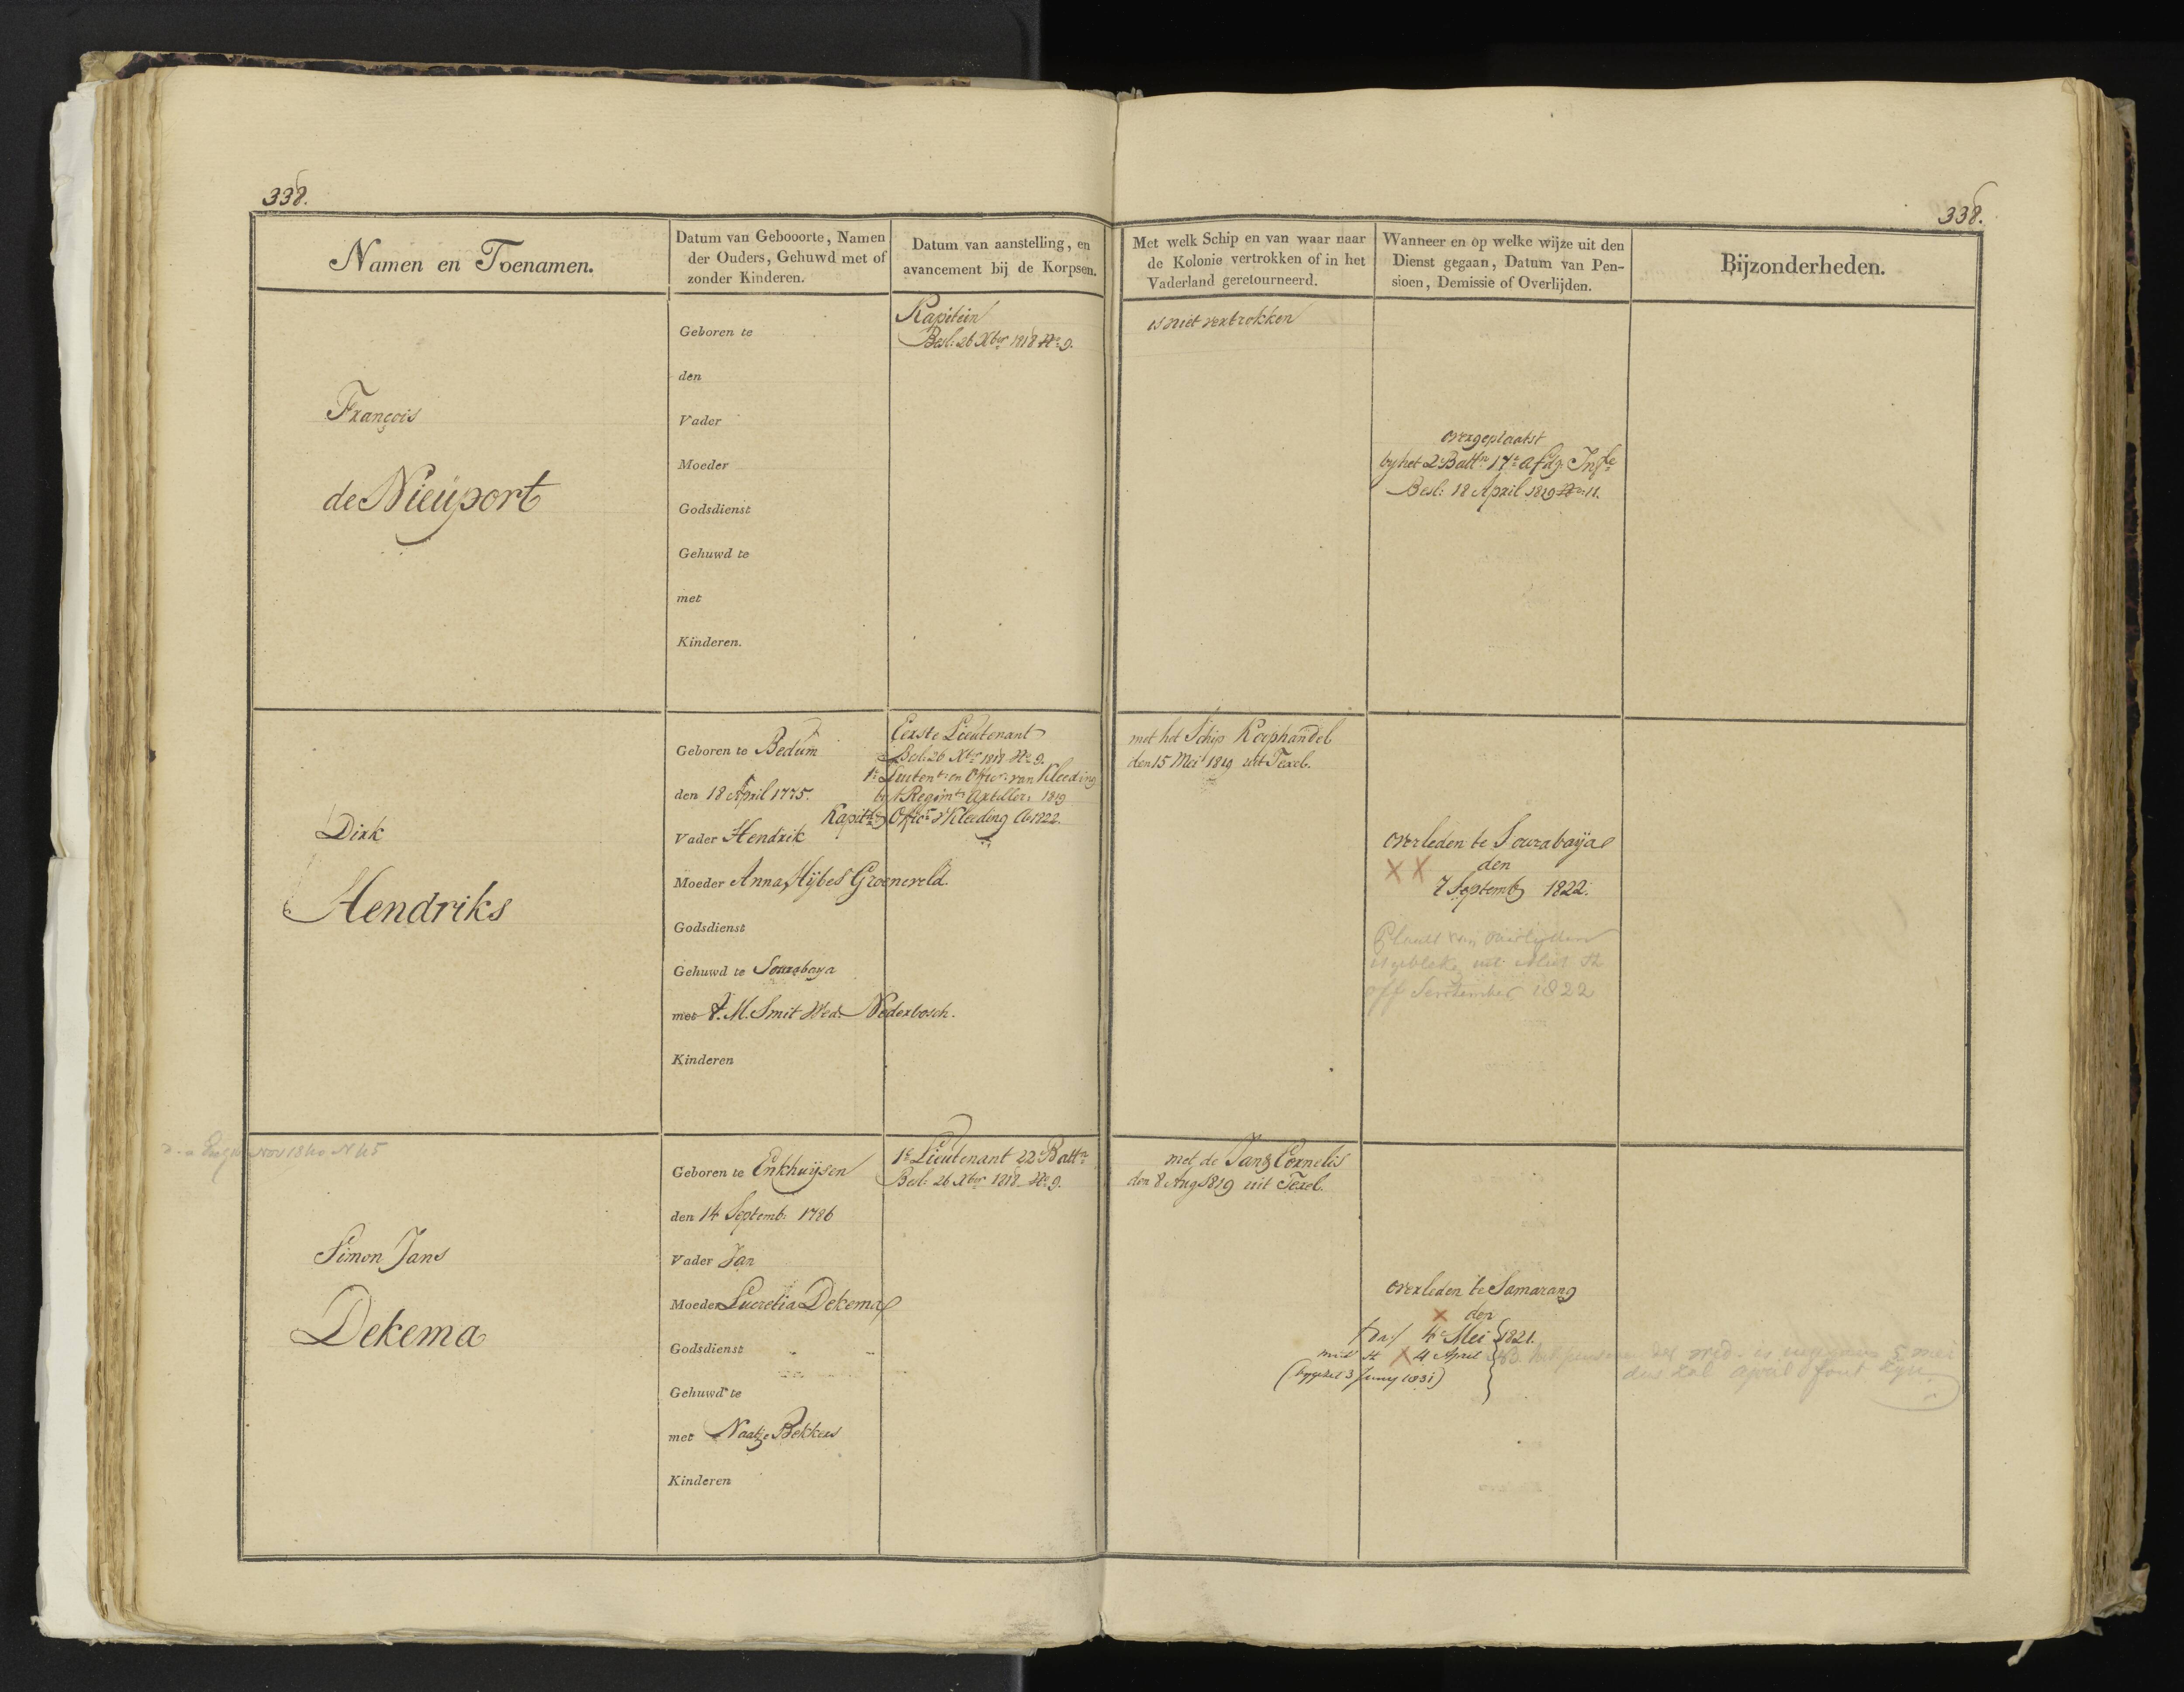 338.
338.
Namen en Toenamen.
Datum van Gebooorte, Namen
der Ouders, Gehuwd met of
zonder Kinderen.
Datum van aanstelling, en
avancement bij de Korpsen.
Met welk Schip en van waar naar
de Kolonie vertrokken of in het
Vaderland geretourneerd.
Wanneer en op welke wijze uit den
Dienst gegaan, Datum van Pen-
sioen, Demissie of Overlijden.
Bijzonderheden.
François
de Nieuport
Geboren te
den
Vader
Moeder
Godsdienst
Gehuwd te
met
Kinderen.
Kapitein
Besl: 26 Xber 1818 No 9.
is niet vertrokken
overgeplaatst
by het 2e Battn 17e Afdg Infie
Besl: 18 April 1819 No 11.
Dirk
Hendriks
Geboren te Bedum
den 18 April 1775.
Vader Hendrik
Moeder Anna Hijbes Groeneveld.
Godsdienst
Gehuwd te Sourabaya
met J. M. Smit Wed. Nederbosch.
Kinderen
Eerste Lieutenant
Besl: 26 Xber 1818 No 9.
1e Luitent en Offcr van Kleeding
by t Regimt Artiller. 1819
Kapitn Offcr v Kleeding Ao 1822.
met het Schip Koophandel
den 15 Mei 1819 uit Texel.
overleden te Sourabaija
X X den
7 Septemb 1822.
van overlyden
uit
September 1822
Nov 1840 N 45
Simon Jans
Dekema
Geboren te Enkhuijsen
den 14 Septemb: 1786
Vader Jan
Moeder Lucretia Dekema
Godsdienst
Gehuwd te
met Naatje Bekkers
Kinderen
1e Lieutenant 22e Battn
Besl: 26 Xber 1818 No 9.
met de Jan & Cornelis
den 8 Aug 1819 uit Texel.
overleden te Samarang
X den
4e Mei 1821.
X 4 April
3 Juny 1831)
5 mei
dus zal april fout zyn